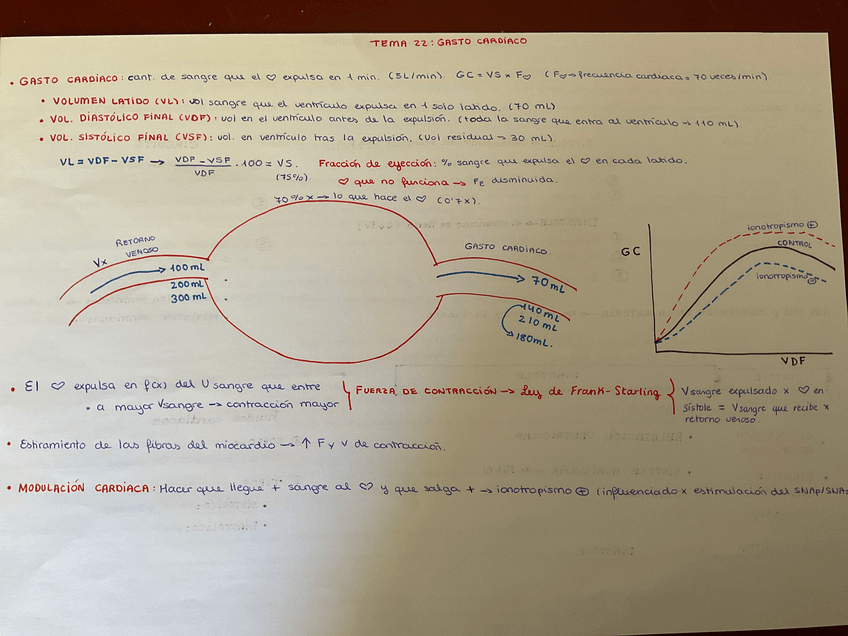 TEMA 22: GASTO CARDÍACO
• GASTO CARDÍACO: cant. de sangre que el ♡ expulsa en 1 min. (5L/min). GC = VS x F♡ (F♡→frecuencia cardiaca = 70 veces/min)
• VOLUMEN LATIDO (VL): vol sangre que el ventrículo expulsa en 1 solo latido. (70 mL)
• VOL. DIASTÓLICO FINAL (VDF): vol en el ventrículo antes de la expulsión. (toda la sangre que entra al ventrículo → 110 mL)
• VOL. SISTÓLICO FINAL (VSF): vol. en ventrículo tras la expulsión. (Vol residual → 30 mL).
VL = VDF - VSF → VDF - VSF / VDF · 100 = VS. Fracción de eyección: % sangre que expulsa el ♡ en cada latido.
(75%) ♡ que no funciona → FE disminuida.
70% x → lo que hace el ♡ (0'7x).
RETORNO
VENOSO
Vx
100 mL
200 mL
300 mL
GASTO CARDÍACO
70 mL
140 mL
210 mL
180 mL.
GC
ionotropismo ⊕
CONTROL
ionotropismo ⊖
VDF
• El ♡ expulsa en f(x) del V sangre que entre
• a mayor Vsangre → contracción mayor
FUERZA DE CONTRACCIÓN → Ley de Frank-Starling
V sangre expulsado x ♡ en
sístole = Vsangre que recibe x
retorno venoso.
• Estiramiento de las fibras del miocardio → ↑ F y V de contracción.
• MODULACIÓN CARDÍACA: Hacer que llegue + sangre al ♡ y que salga + → ionotropismo ⊕ (influenciado x estimulación del SNAp/SNAs